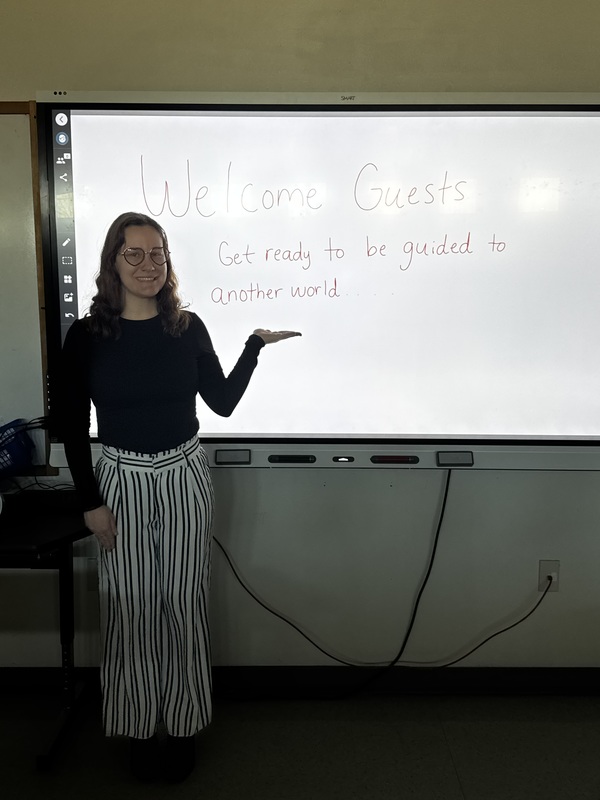 SMART
Welcome Guests
Get ready to be guided to
another world.....